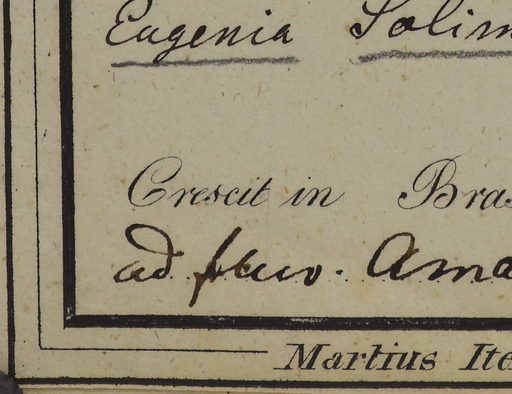 Eugenia Solim
Crescit in Bras
ad fluv. Ama
Martius Ite